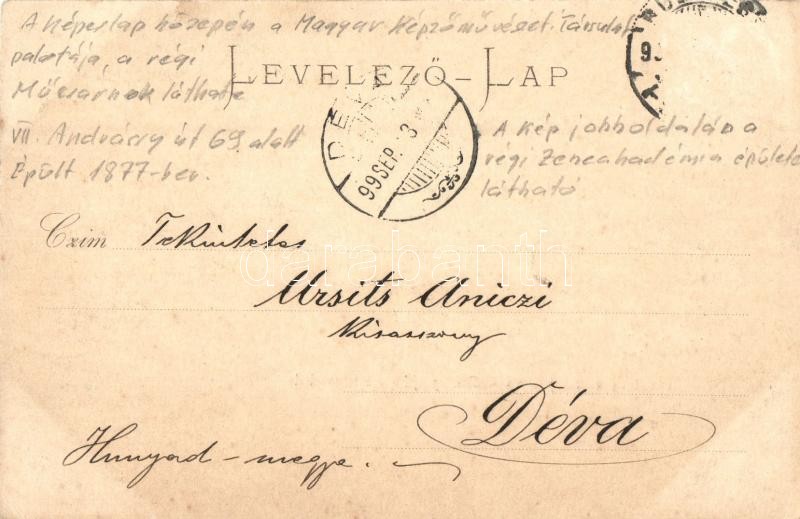 A képeslap közepén a Magyar Képzőművészeti Társulat
palotája, a régi
Műcsarnok látható
VII. Andrássy út 69 alatt
Épült 1877-ben.
LEVELEZŐ-LAP
A kép jobboldalán a
régi Zeneakadémia épülete
látható
99 SEP. 3
Czim Tekintetes
Ursits Aniczi
Kisasszony
Déva
Hunyad-megye.
darabanth